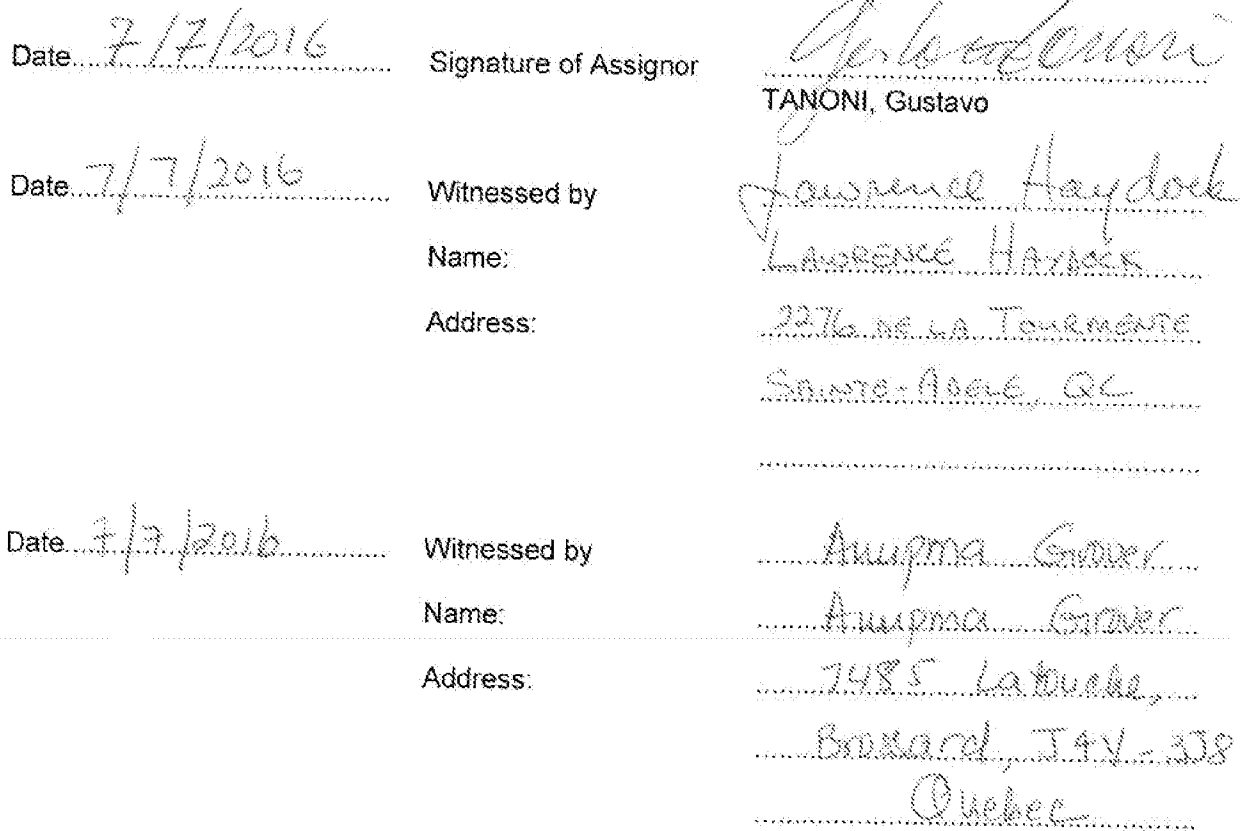 Date 7/7/2016 Signature of Assignor Gustavo Tanoni
TANONI, Gustavo
Date 7/7/2016 Witnessed by Lawrence Haydock
Name: LAWRENCE HAYDOCK
Address: 2276 DE LA TOURMENTE
SAINTE-ADELE, QC
Date 7/7/2016 Witnessed by Anupma Grover
Name: Anupma Grover
Address: 7485 Latouche,
Brossard, J4Y-3J8
Quebec